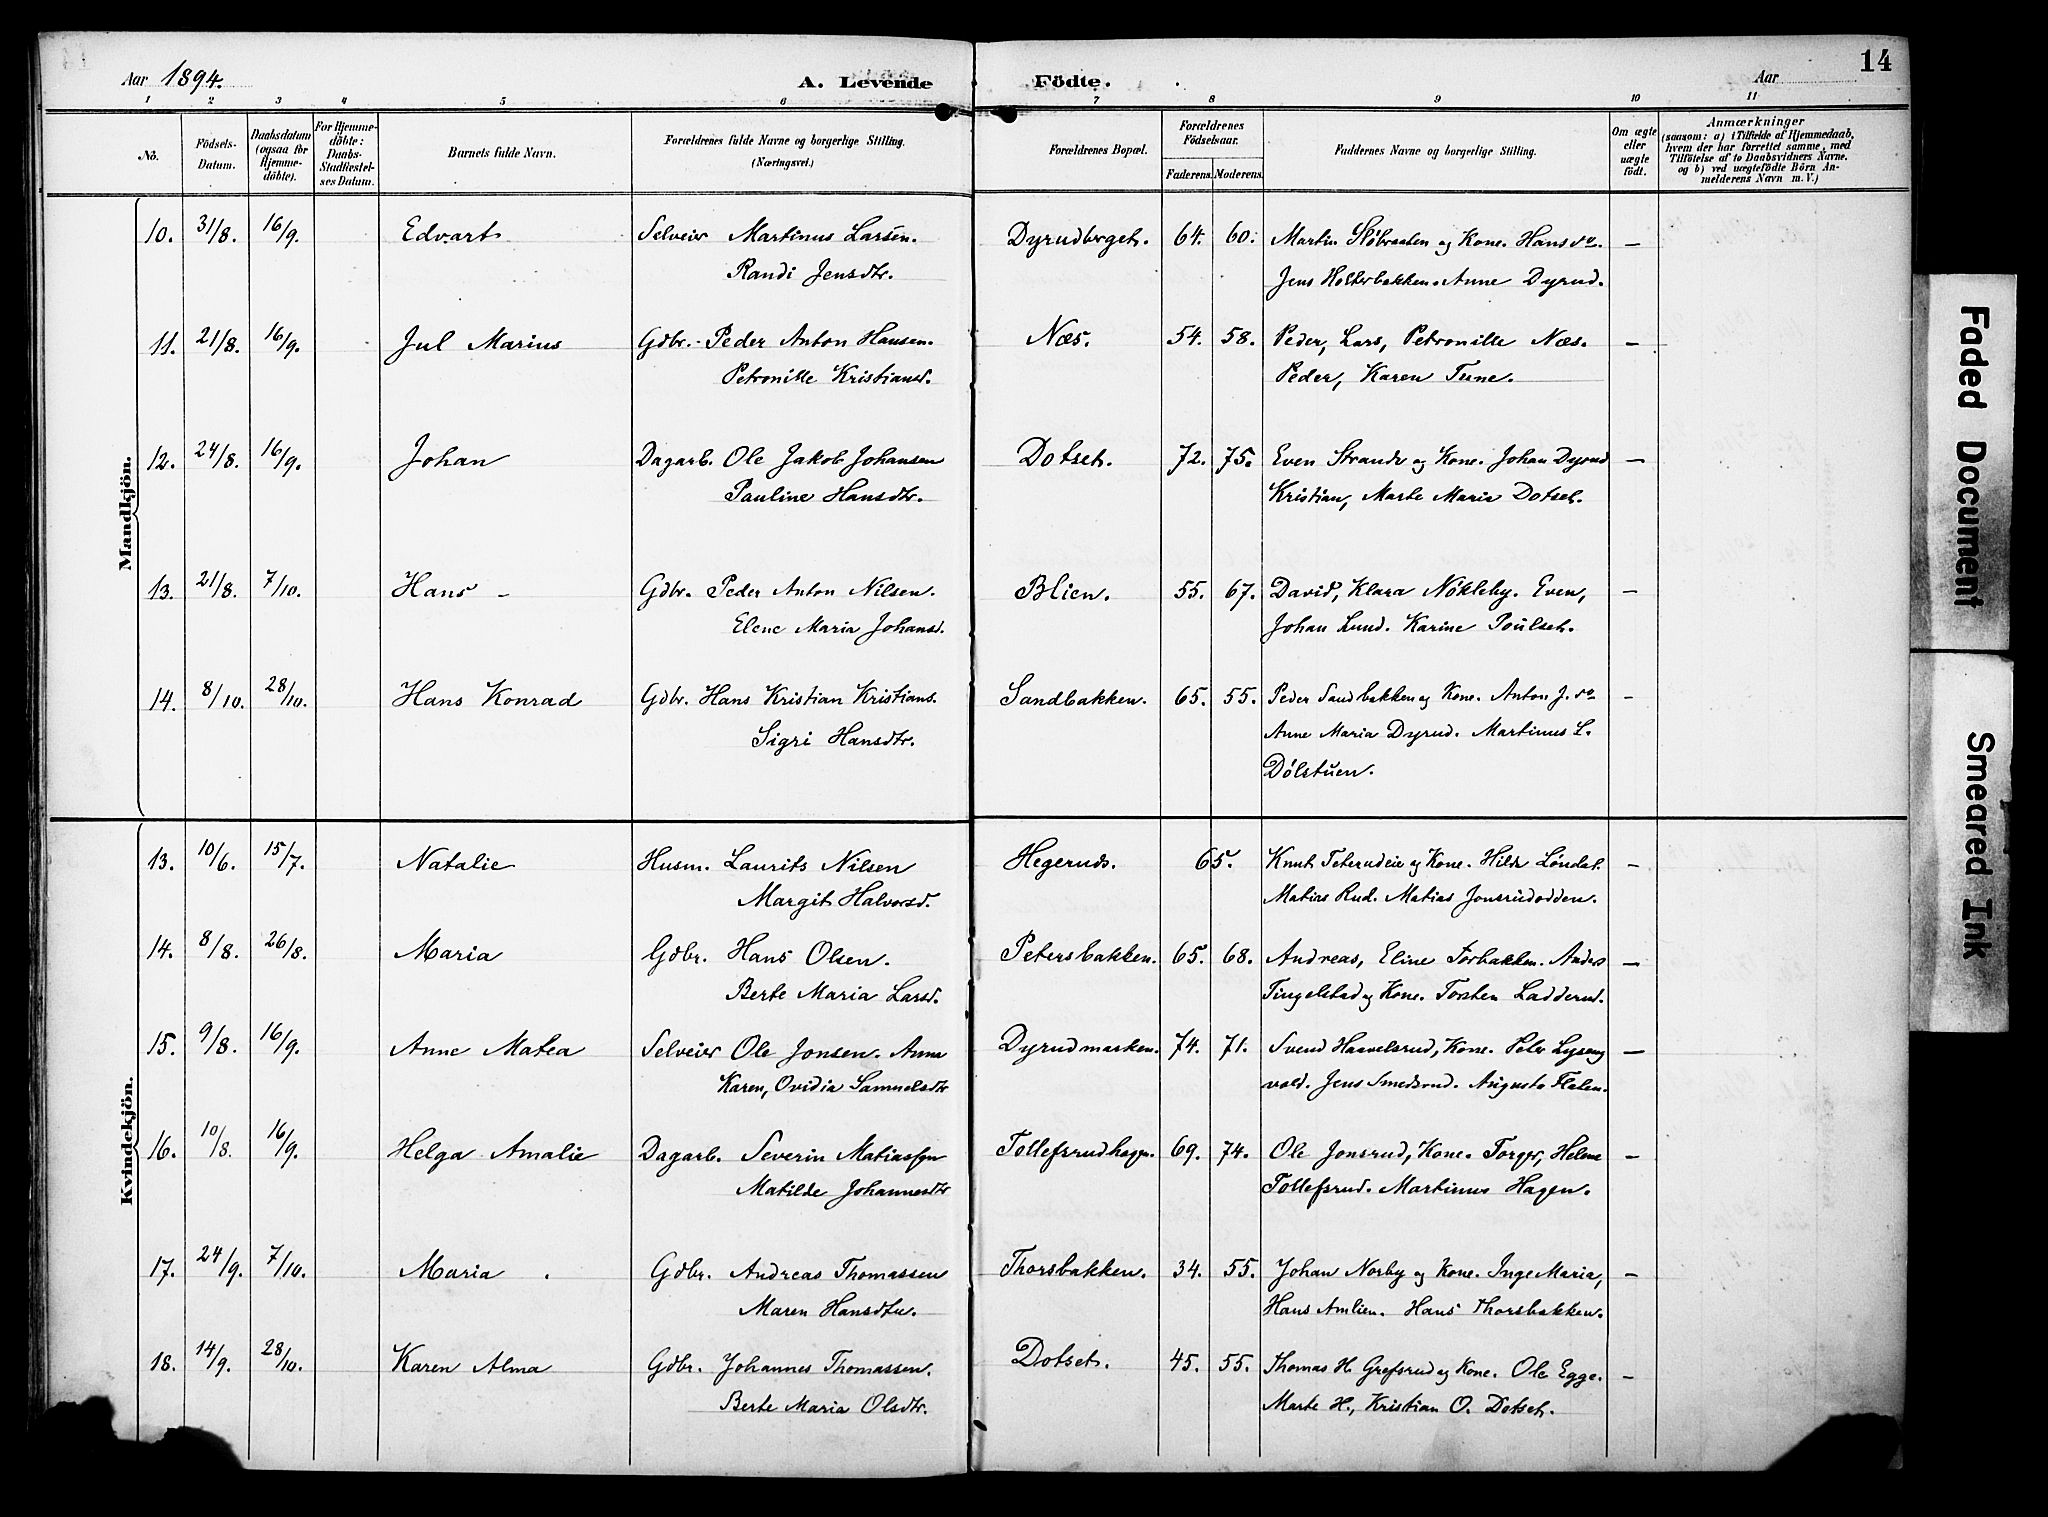 14
Aar 1894. A. Levende Födte. Aar
1 2 3 4 5 6 7 8 9 10 11
No.
Födsels-
Datum.
Daabsdatum
(ogsaa for
Hjemme-
döbte).
For Hjemme-
döbte:
Daabs-
Stadfæstel-
ses Datum.
Barnets fulde Navn.
Forældrenes fulde Navne og borgerlige Stilling.
(Næringsvei.)
Forældrenes Bopæl.
Forældrenes
Födselsaar.
Faderens. Moderens.
Faddernes Navne og borgerlige Stilling.
Om ægte
eller
uægte
födt.
Anmærkninger
(saasom: a) i Tilfælde af Hjemmedaab,
hvem der har forrettet samme, med
Tilföielse af to Daabsvidners Navne.
og b) ved uægtefödte Börn An-
melderens Navn m. V.)
Mandkjön.
10. 31/8. 16/9. Edvart Selveier Martinus Larsen. Dyrudberget. 64. 60. Martin Stöbraaten og Kone. Hans do. —
Randi Jensdtr. Jens Holterbakken. Anne Dyrud.
11. 21/8. 16/9. Jul Marius Gdbr. Peder Anton Hansen. Næs. 54. 58. Peder, Lars, Petronille Næs. —
Petronille Kristiansd. Peder, Karen Tune.
12. 24/8. 16/9. Johan Dagarb. Ole Jakob Johansen Dotset. 72. 75. Even Strande og Kone. Johan Dyrud —
Pauline Hansdtr. Kristian, Marte Maria Dotset.
13. 21/8. 7/10. Hans — Gdbr. Peder Anton Nilsen. Blien. 55. 67. David, Klara Nökleby. Even, —
Elene Maria Johansd. Johan Lund. Karine Poulset.
14. 8/10. 28/10. Hans Konrad Gdbr. Hans Kristian Kristians. Sandbakken. 65. 55. Peder Sandbakken og Kone. Anton J. do —
Sigri Hansdtr. Anne Maria Dyrud. Martinus L.
Dölstuen.
Kvindekjön.
13. 10/6. 15/7. Natalie Husm. Laurits Nilsen Hegeruds. 65. Knut Teterudeie og Kone. Hilde Löndal. —
Margit Halvorsd. Matias Rud. Matias Jonsrudodden.
14. 8/8. 26/8. Maria Gdbr. Hans Olsen. Petersbakken. 65. 68. Andreas, Eline Torbakken. Anders —
Berte Maria Larsd. Tingelstad og Kone. Torsten Ladderud.
15. 9/8. 16/9. Anne Matea Selveier Ole Jonsen. Anne Dyrudmarken. 74. 71. Svend Haavelsrud, Kone. Peter Lyseng —
Karen, Ovidia Samuelsdtr vold. Jens Smedsrud. Augusta Flaten.
16. 10/8. 16/9. Helga Amalie Dagarb. Severin Matiassen Tollefsrudhagen. 69. 74. Ole Jonsrud, Kone. Torger, Helene —
Matilde Johannesdtr Tollefsrud. Martinus Hagen.
17. 24/9. 7/10. Maria . Gdbr. Andreas Thomassen Thorsbakken. 34. 55. Johan Norby og Kone. Inge Maria, —
Maren Hansdtr. Hans Amlien. Hans Thorsbakken.
18. 14/9. 28/10. Karen Alma Gdbr. Johannes Thomassen. Dotset. 45. 55. Thomas H. Grefsrud og Kone. Ole Egge. —
Berte Maria Olsdtr. Marte H., Kristian O. Dotset.
Faded Document
Smeared Ink